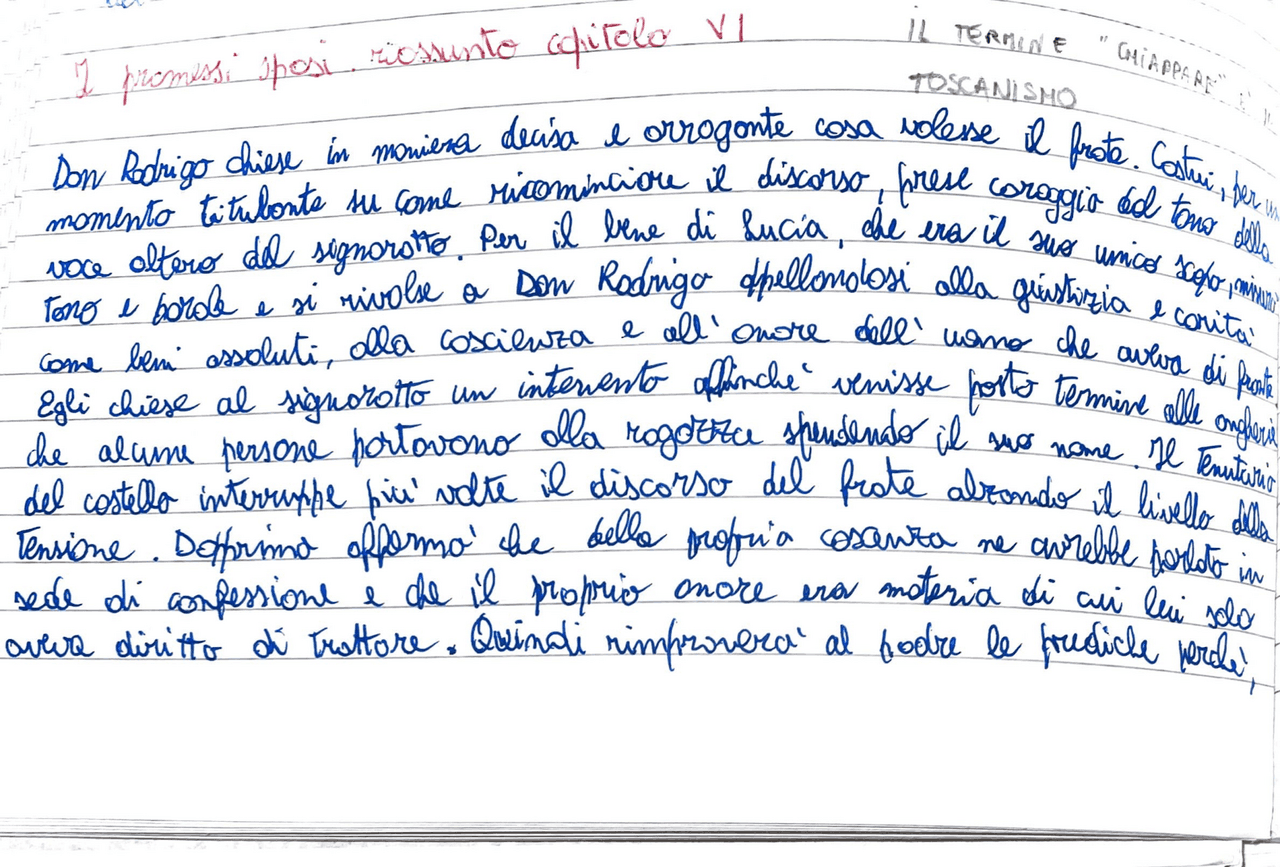 I promessi sposi. riassunto capitolo VI
IL TERMINE "CHIAPPARE" È
TOSCANISMO
Don Rodrigo chiese in maniera decisa e arrogante cosa volesse il frate. Costui, per un
momento titubante su come ricominciare il discorso, prese coraggio dal tono della
voce altero del signorotto. Per il bene di Lucia, che era il suo unico scopo, misurò
tono e parole e si rivolse a Don Rodrigo appellandosi alla giustizia e carità
come beni assoluti, alla coscienza e all'onore dell'uomo che aveva di fronte
Egli chiese al signorotto un intervento affinché venisse posto termine alle angherie
che alcune persone portavano alla ragazza spendendo il suo nome. Il Tenutario
del castello interruppe più volte il discorso del frate alzando il livello della
Tensione. Dapprima affermò che della propria cosanza ne avrebbe parlato in
sede di confessione e che il proprio onore era materia di cui lui solo
aveva diritto di trattare. Quindi rimproverà al padre le prediche perchè,